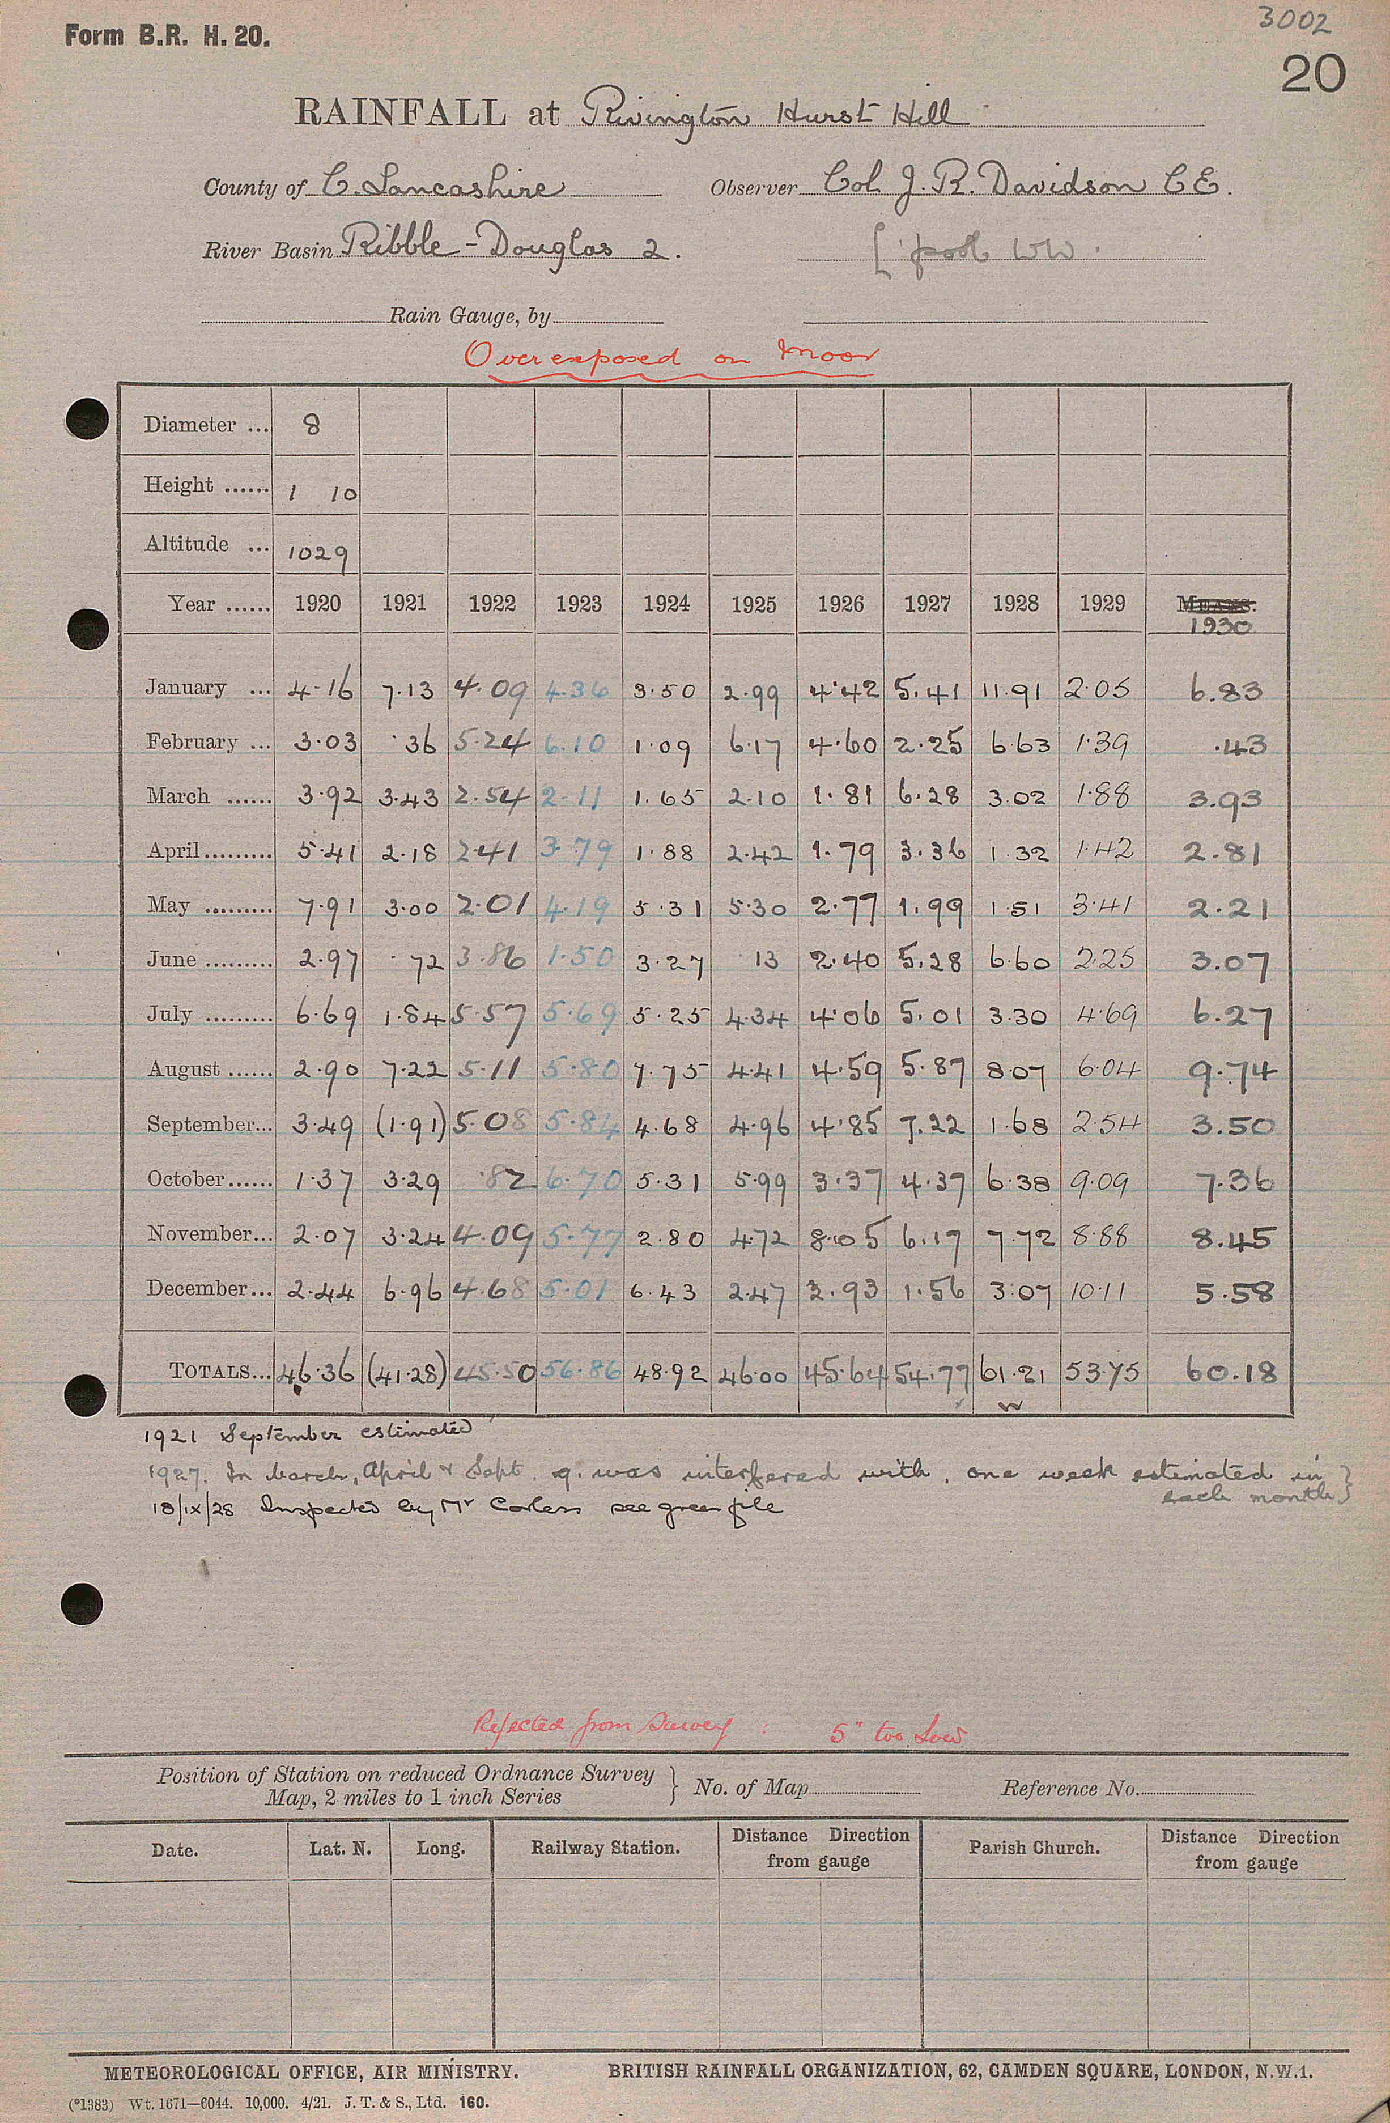 Form B.R. H. 20.
3002
20
RAINFALL at Rivington Hurst Hill
County of C. Lancashire Observer Col. J. R. Davidson C E.
River Basin Ribble - Douglas 2. L'pool WW.
Rain Gauge, by
Over exposed on Moor
Diameter ... 8
Height ...... 1 10
Altitude ... 1029
Year ...... 1920 1921 1922 1923 1924 1925 1926 1927 1928 1929 MEANS. 1930
January ... 4.16 7.13 4.09 4.36 3.50 2.99 4.42 5.41 11.91 2.05 6.83
February ... 3.03 .36 5.24 6.10 1.09 6.17 4.60 2.25 6.63 1.39 .43
March ...... 3.92 3.43 2.54 2.11 1.65 2.10 1.81 6.28 3.02 1.88 3.93
April ......... 5.41 2.18 2.41 3.79 1.88 2.42 1.79 3.36 1.32 1.42 2.81
May ......... 7.91 3.00 2.01 4.19 5.31 5.30 2.77 1.99 1.51 3.41 2.21
June ......... 2.97 .72 3.86 1.50 3.27 .13 2.40 5.28 6.60 2.25 3.07
July ......... 6.69 1.84 5.57 5.69 5.25 4.34 4.06 5.01 3.30 4.69 6.27
August ...... 2.90 7.22 5.11 5.80 7.75 4.41 4.59 5.87 8.07 6.04 9.74
September... 3.49 (1.91) 5.08 5.84 4.68 4.96 4.85 7.22 1.68 2.54 3.50
October...... 1.37 3.29 .82 6.70 5.31 5.99 3.37 4.37 6.38 9.09 7.36
November... 2.07 3.24 4.09 5.77 2.80 4.72 8.05 6.17 7.72 8.88 8.45
December... 2.44 6.96 4.68 5.01 6.43 2.47 2.93 1.56 3.07 10.11 5.58
TOTALS... 46.36 (41.28) 45.50 56.86 48.92 46.00 45.64 54.77 61.21 53.75 60.18
1921 September estimated
1927. In March, April & Sept. g. was interfered with, one week estimated in
each month.}
18/IX/28 Inspected by Mr Corless see green file
Rejected from Survey : 5" too low
Position of Station on reduced Ordnance Survey
Map, 2 miles to 1 inch Series } No. of Map Reference No.
Date. Lat. N. Long. Railway Station. Distance Direction from gauge Parish Church. Distance Direction from gauge
METEOROLOGICAL OFFICE, AIR MINISTRY. BRITISH RAINFALL ORGANIZATION, 62, CAMDEN SQUARE, LONDON, N.W.1.
(*1383) Wt. 1671—6044. 10,000. 4/21. J. T. & S., Ltd. 160.